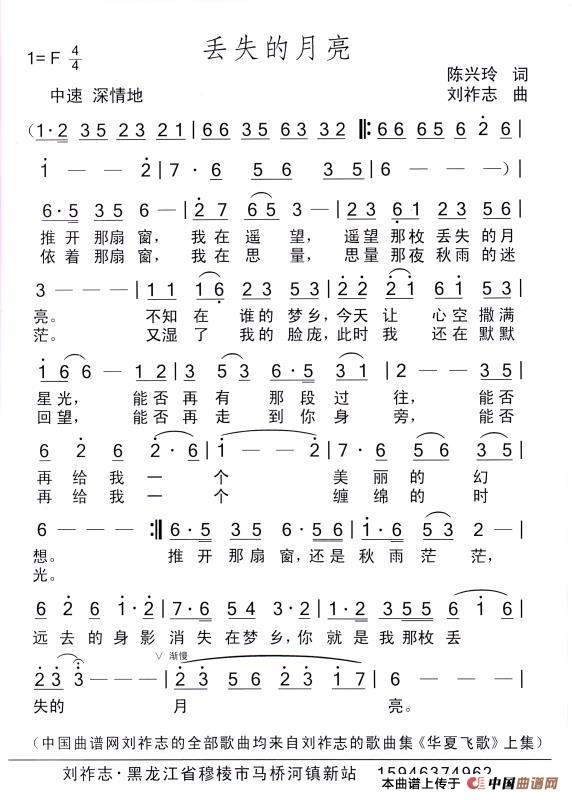 丢失的月亮
1= F 4/4
陈兴玲 词
中速 深情地
刘祚志 曲
(1·2 35 23 21 | 66 63 35 32 | 66 65 6 26 |
1 — — 2 | 7·6 56 35 | 6 — — ) |
6·5 35 6 — | 27 65 3 — | 23 61 23 56 |
推开那扇窗, 我在遥望, 遥望那枚丢失的月
依着那扇窗, 我在思量, 思量那夜秋雨的迷
3 — — | 11 16 23 53 | 22 21 61 65 |
亮。 不知在谁的梦乡,今天让心空撒满
茫。 又湿了我的脸庞,此时我还在默默
16 6 — 12 | 3 53 5 6 1 | 2 — — 35 |
星光, 能否再有那段过往, 能否
回望, 能否再走到你身旁, 能否
6 2 6 2·6 | 1 — — 2 | 7·6 56 46 35 |
再给我一个美丽的幻
再给我一个缠绵的时
6 — — — :| 6·5 35 6·56 | 1·6 53 2 — |
想。 推开那扇窗,还是秋雨茫茫,
光。
6 26 2 1·2 | 7·6 54 32 3 | 1·2 35 56 6 16 |
远去的身影消失在梦乡,你就是我那枚丢
∨ 渐慢
23 3 — — | 23 56 23 17 | 6 — — — |
失的月亮。
(中国曲谱网刘祚志的全部歌曲均来自刘祚志的歌曲集《华夏飞歌》上集)
刘祚志·黑龙江省穆棱市马桥河镇新站 15946374962
本曲谱上传于 中国曲谱网